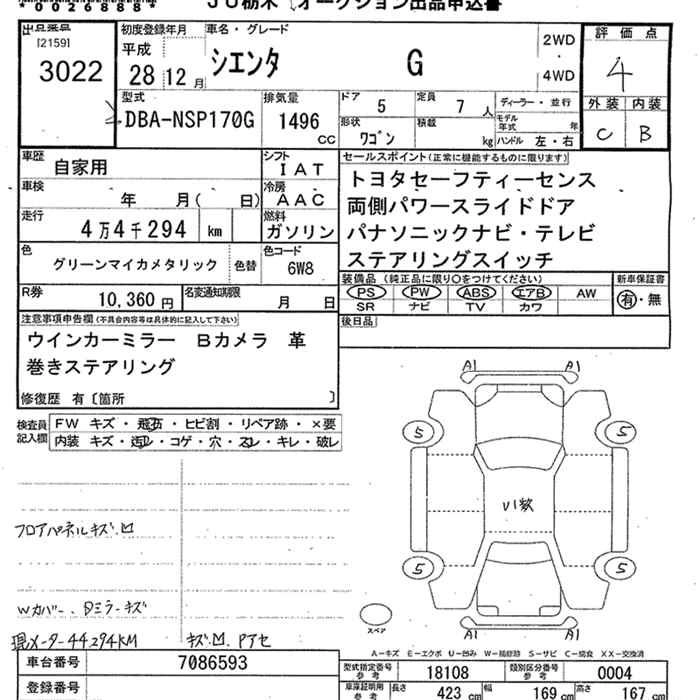 *0026888*
JU栃木 オークション出品申込書
出品番号
[2159]
3022
初度登録年月
平成
28 12 月
車名・グレード
シエンタ G
2WD
4WD
評価点
4
外装 内装
C B
型式
DBA-NSP170G
排気量
1496 CC
ドア 5
定員 7 人
形状 ワゴン
積載 kg
ディーラー・並行
モデル年式 年
ハンドル 左・右
車歴
自家用
シフト
IAT
車検
年 月( 日)
冷房
AAC
走行
4万4千294 km
燃料
ガソリン
セールスポイント(正常に機能するものに限ります)
トヨタセーフティーセンス
両側パワースライドドア
パナソニックナビ・テレビ
ステアリングスイッチ
色
グリーンマイカメタリック
色替
色コード
6W8
装備品(純正品に限り○をつけてください)
PS PW ABS エアB AW
SR ナビ TV カワ
新車保証書
有・無
R券
10,360円
名変通知期限
月 日
後日品
注意事項申告欄(不具合内容等は具体的に記入して下さい)
ウインカーミラー Bカメラ 革
巻きステアリング
修復歴 有〔箇所 〕
検査員記入欄
FW キズ・飛石・ヒビ割・リペア跡・×要
内装 キズ・汚レ・コゲ・穴・スレ・キレ・破レ
A1 A1
5 5
5 5
A1 A1
スペア
フロアパネルキズ.凹
Wカバー、Dミラーキズ
現メーター44294KM
キズ.凹.Pアセ
A-キズ E-エクボ U-凹み W-補修跡 S-サビ C-腐食 XX-交換済
車台番号
7086593
登録番号
型式指定番号
参考
18108
類別区分番号
参考
0004
車庫証明用
参考
長さ 423 cm
幅 169 cm
高さ 167 cm